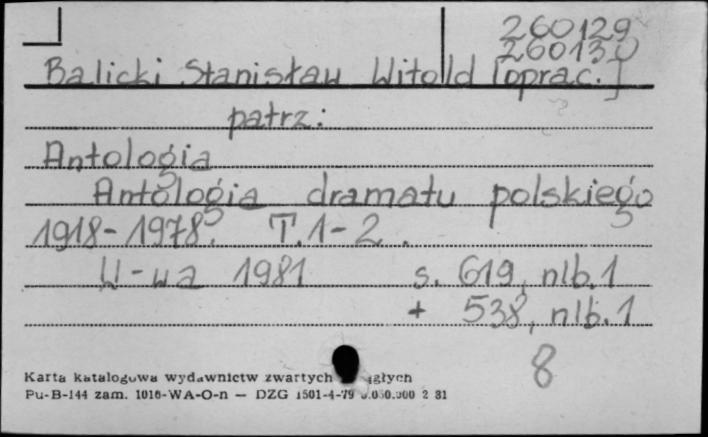 260129
260130
Balicki Stanisław Witold [oprac.]
patrz:
Antologia
Antologia dramatu polskiego
1918-1978. T.1-2.
W-wa 1981 s. 619, nlb.1
+ 538, nlb.1
8
Karta katalogowa wydawnictw zwartych
Pu-B-144 zam. 1016-WA-O-n — DZG 1501-4-79 2 81